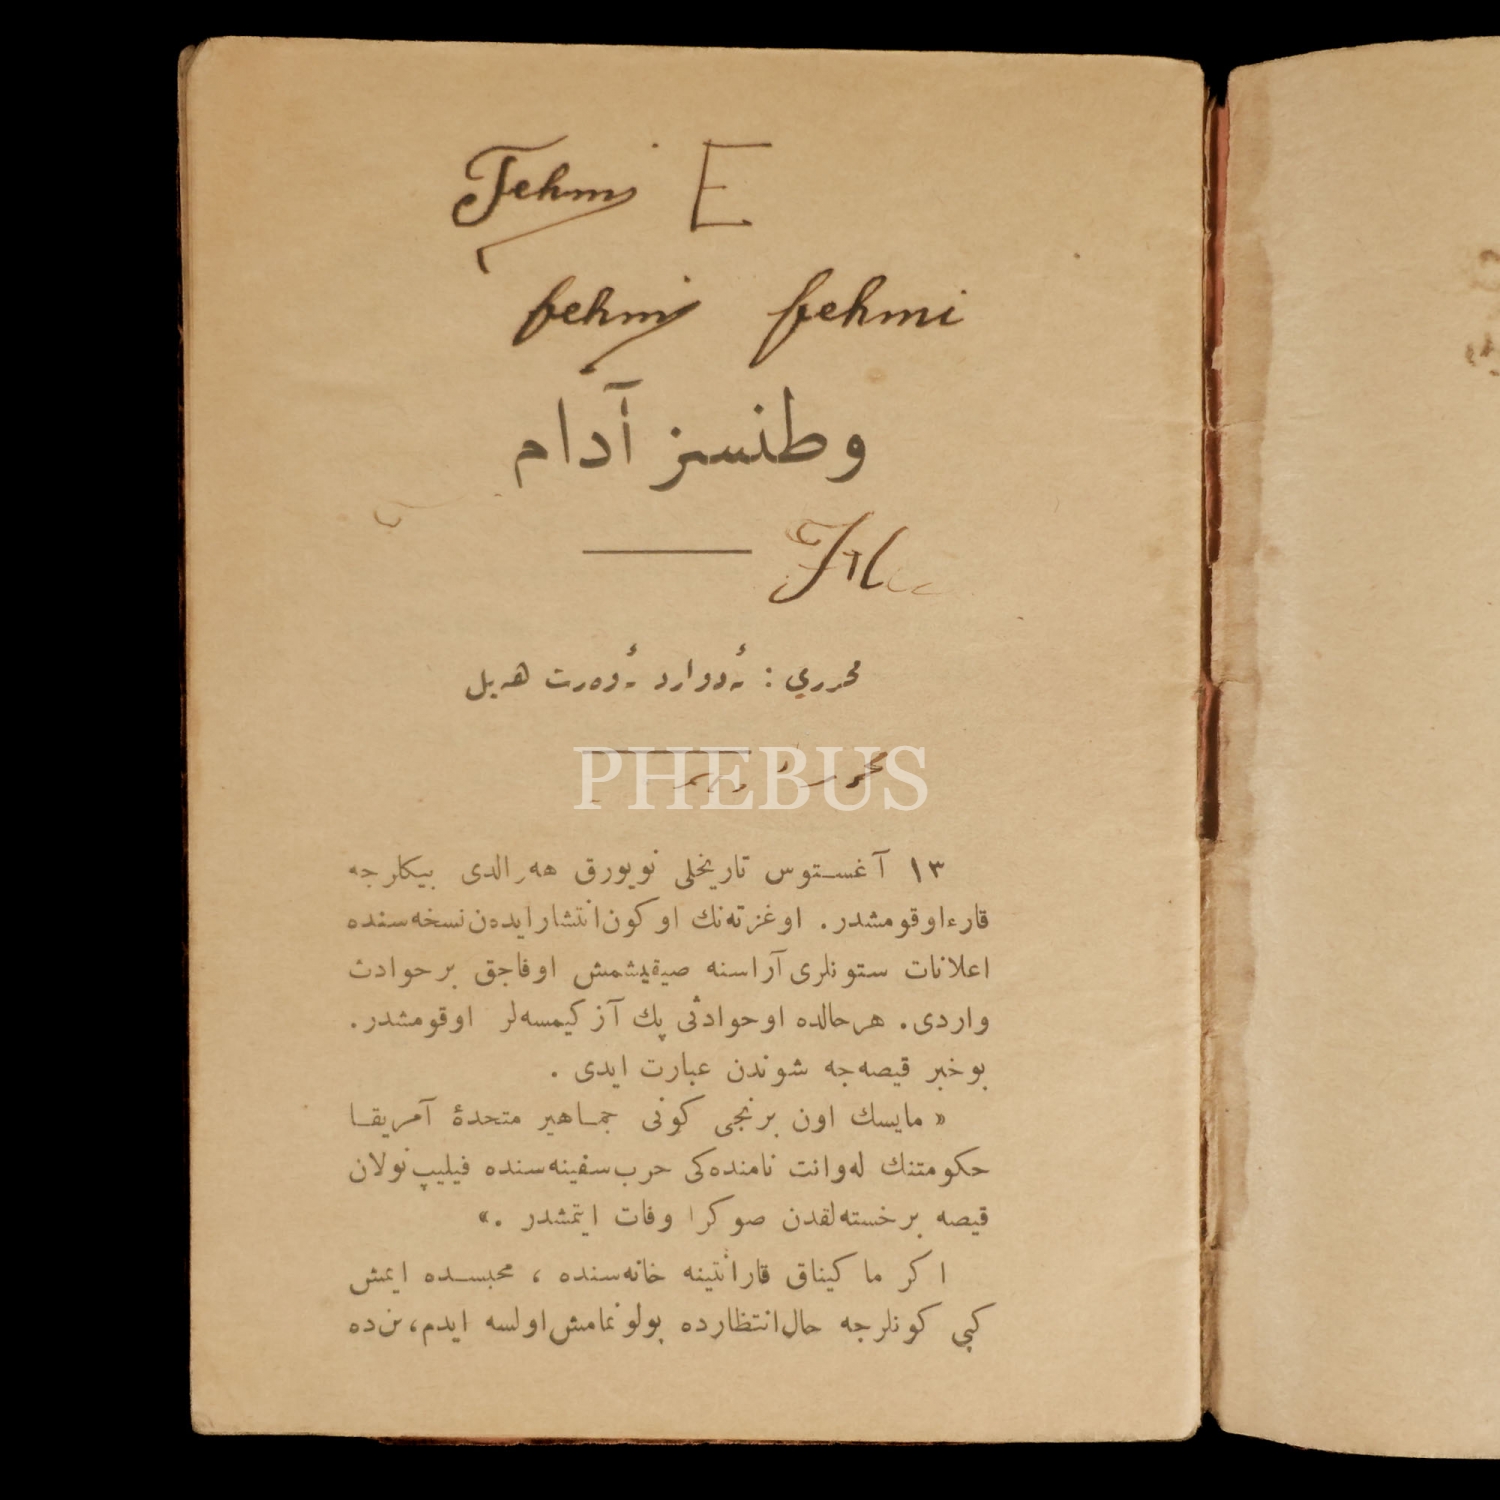 Fehmi E
fehmi fehmi
وطنسز آدام
محرري : ئەدوارد ئەوەرت هەیل
PHEBUS
١٣ آغستوس تاریخلی نویورق هەرالدی بیكلرجه
قارءاوقومشدر. اوغزتەنك اوكون انتشارایدەن نسخەسندە
اعلانات ستونلری آراسنه صیقیشمش اوفاجق برحوادث
واردی. هرحالده اوحوادثی پك آزكیمسەلر اوقومشدر.
بوخبر قیصەجه شوندن عبارت ایدی .
« مایسك اون برنجی كونی جماهیر متحدۀ آمریقا
حكومتنك لەوانت نامندەكی حرب سفینەسنده فیلیپ نولان
قیصه برخستەلقدن صوكرا وفات ایتمشدر .»
اكر ماكیناق قارانتینه خانەسنده ، محبسده ایمش
كبی كونلرجه حال انتظارده بولونمامش اولسه ایدم، بن ده